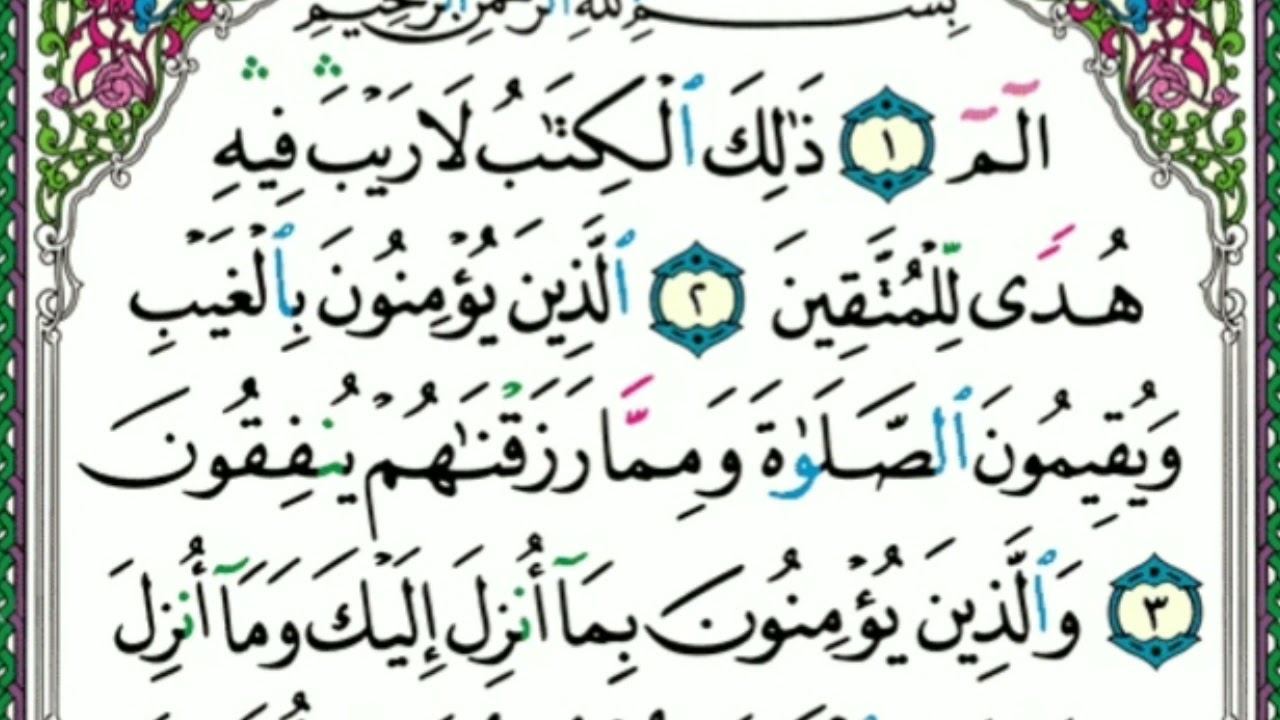 بِسْمِ ٱللَّهِ ٱلرَّحْمَٰنِ ٱلرَّحِيمِ
الٓمٓ ١ ذَٰلِكَ ٱلْكِتَٰبُ لَا رَيْبَ ۛ فِيهِ ۛ
هُدًى لِّلْمُتَّقِينَ ٢ ٱلَّذِينَ يُؤْمِنُونَ بِٱلْغَيْبِ
وَيُقِيمُونَ ٱلصَّلَوٰةَ وَمِمَّا رَزَقْنَٰهُمْ يُنفِقُونَ
٣ وَٱلَّذِينَ يُؤْمِنُونَ بِمَآ أُنزِلَ إِلَيْكَ وَمَآ أُنزِلَ